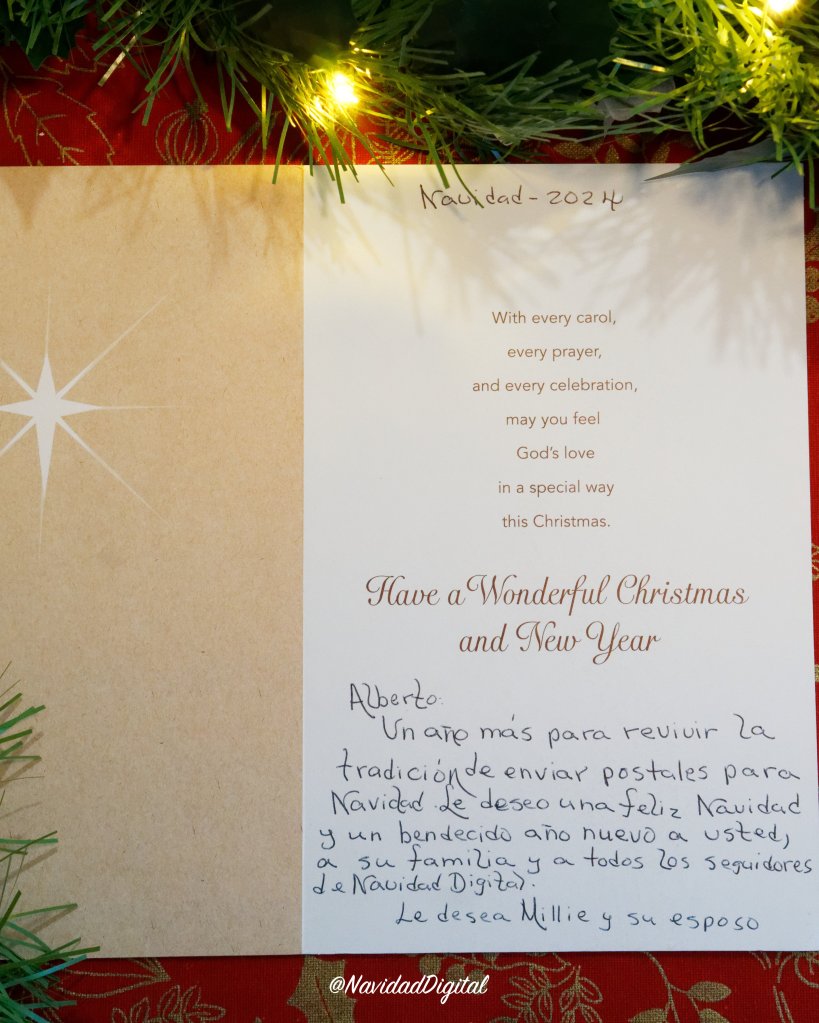 Navidad - 2024
With every carol,
every prayer,
and every celebration,
may you feel
God's love
in a special way
this Christmas.
Have a Wonderful Christmas
and New Year
Alberto:
Un año más para revivir la
tradición de enviar postales para
Navidad. Le deseo una feliz Navidad
y un bendecido año nuevo a usted,
a su familia y a todos los seguidores
de Navidad Digital.
Le desea Millie y su esposo
@NavidadDigital